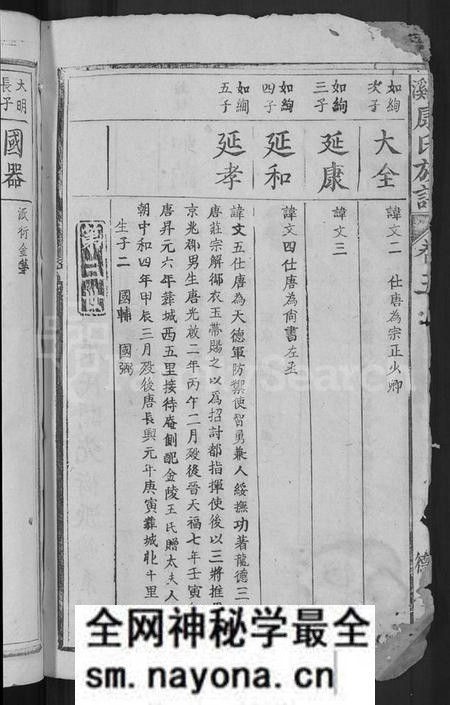 溪康氏族譜 卷三
如絢次子
大全
諱文二 仕唐為宗正少卿
如絢三子
延康
諱文三
如絢四子
延和
諱文四仕唐為尚書左丞
如絢五子
延孝
諱文五仕唐為天德軍防禦使智勇兼人綏撫功著龍德三
唐莊宗解御衣玉帶賜之以為招討都指揮使後以三將推
京兆郡男生唐光啟二年丙午二月歿後晉天福七年壬寅
唐昇元六年葬城西五里接待庵側配金陵王氏贈太夫人
朝中和四年甲辰三月歿後唐長興元年庚寅葬城北十里
生子二 國輔 國弼
大明長子
國器
派衍金
全网神秘学最全
sm.nayona.cn